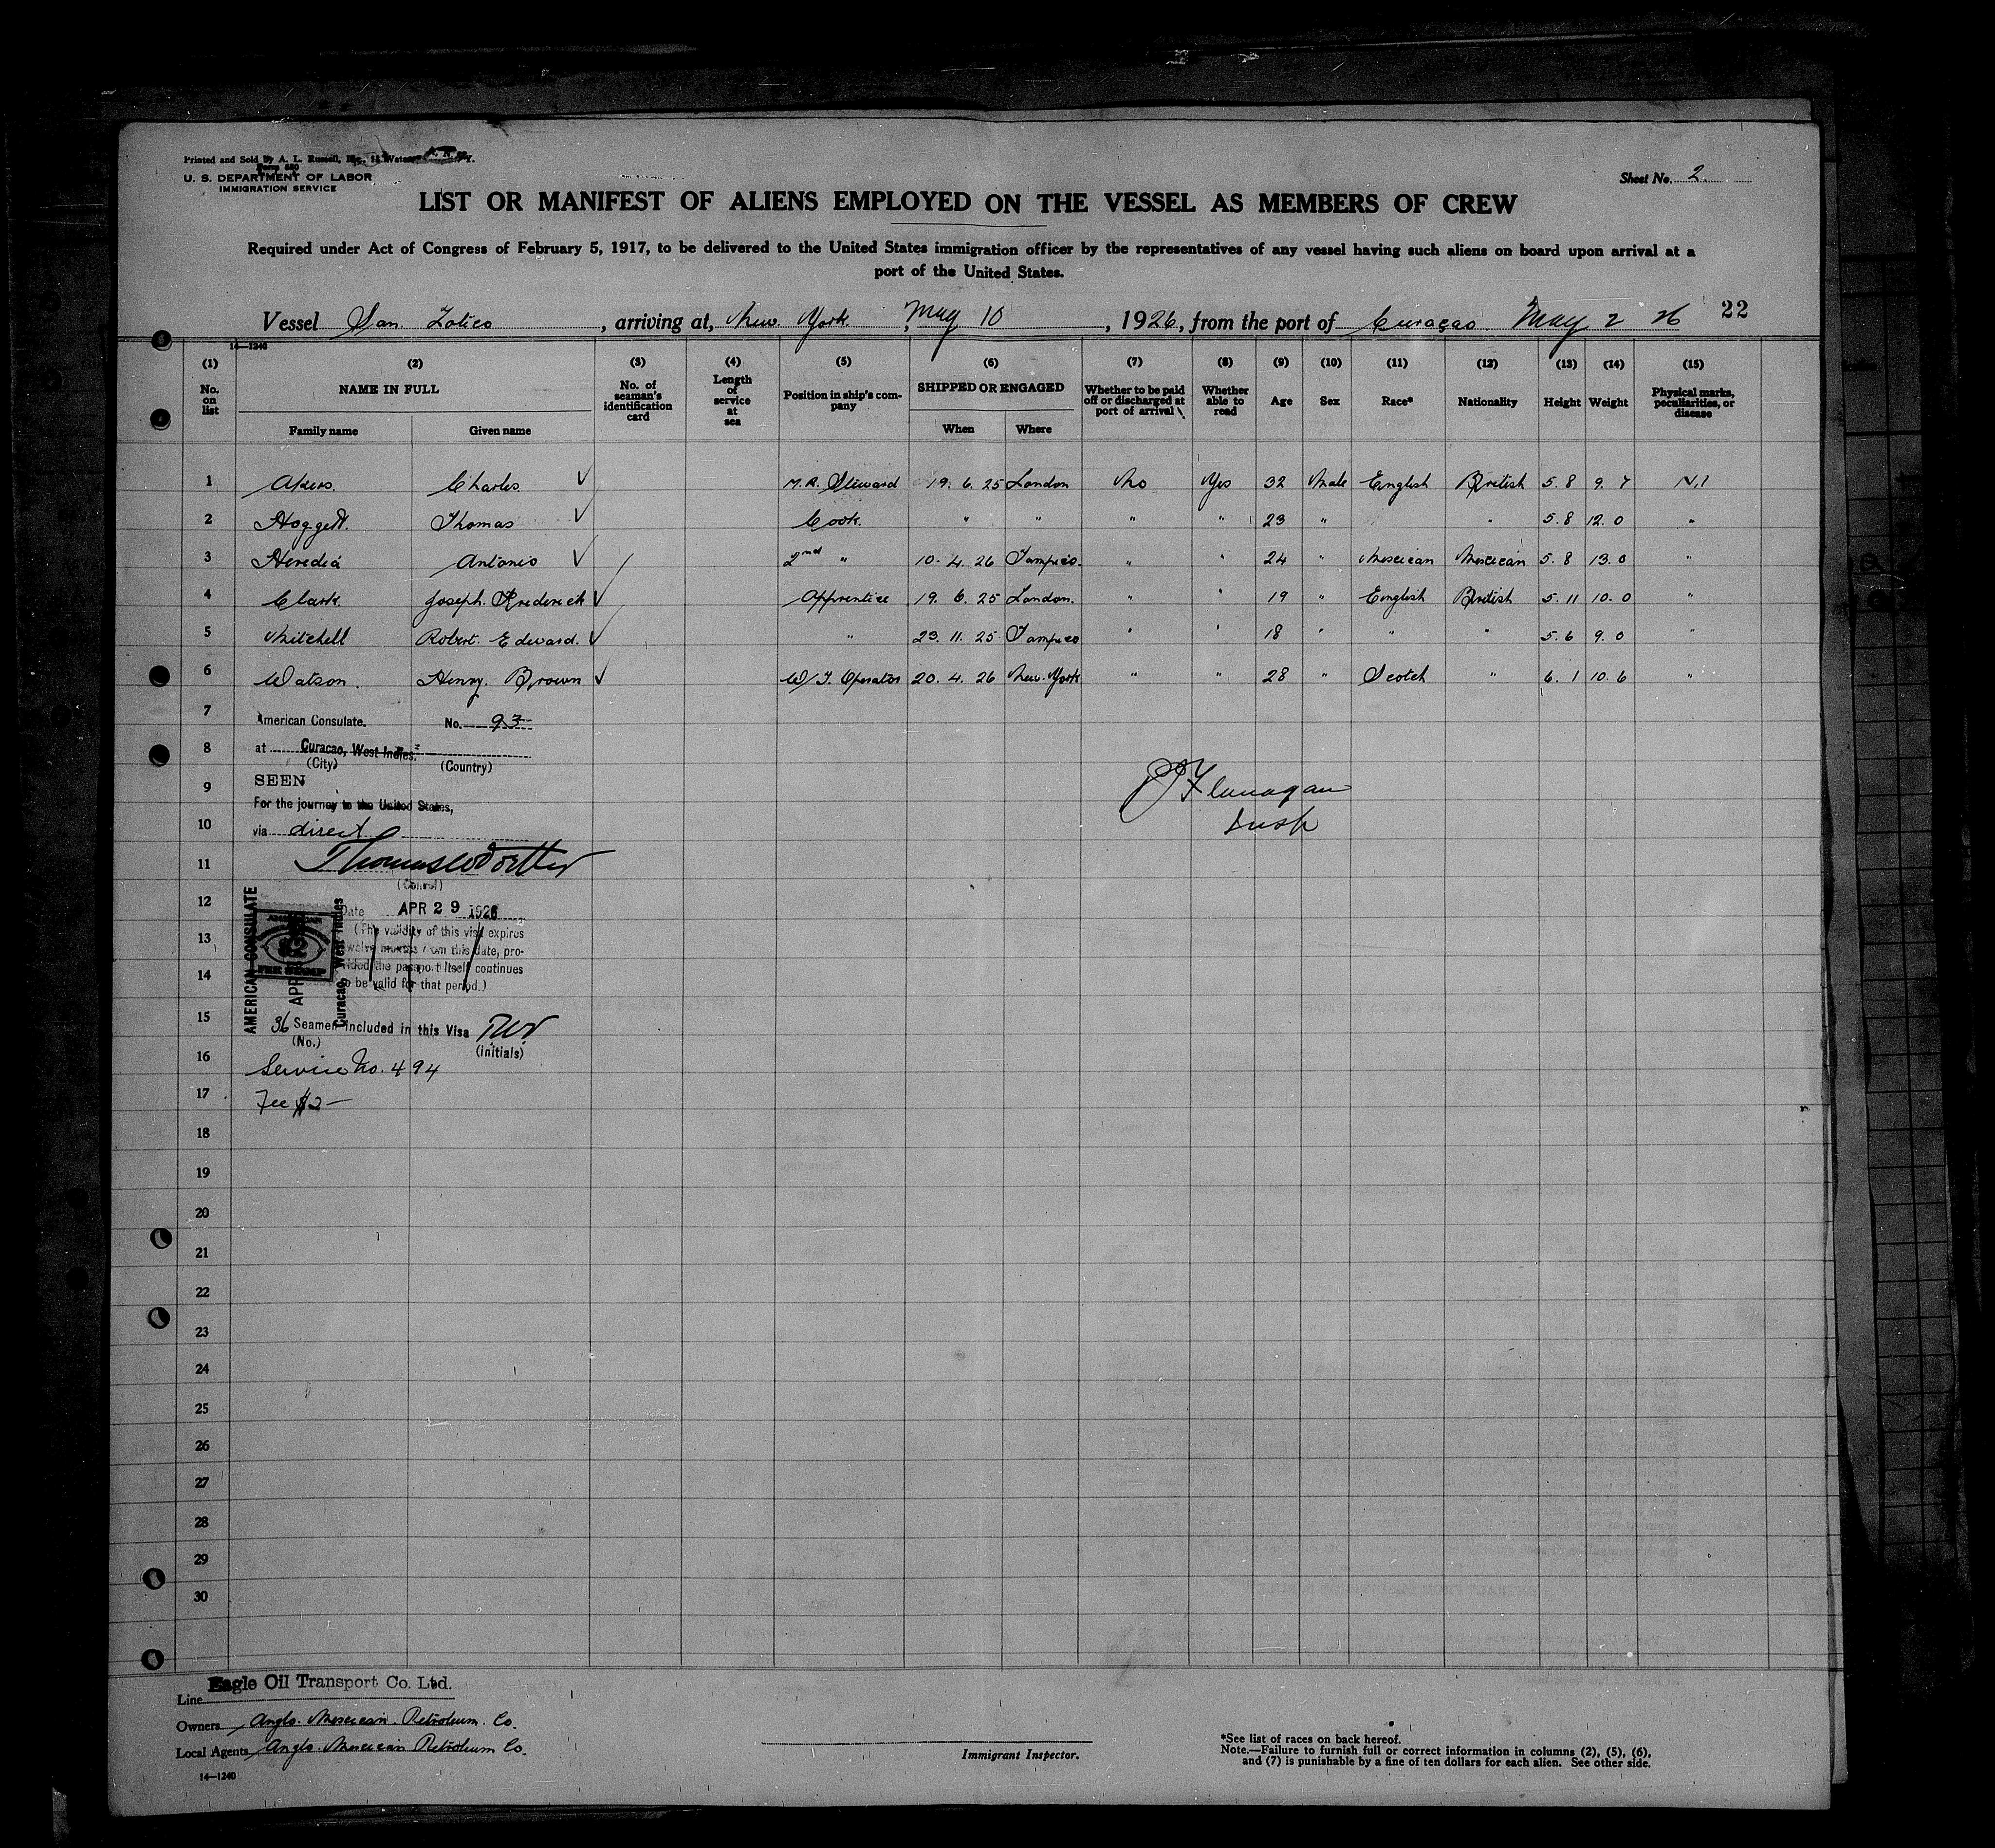 Printed and Sold By A. L. Russell, Inc., Water
Form 680
U. S. DEPARTMENT OF LABOR
IMMIGRATION SERVICE
Sheet No. 2.
LIST OR MANIFEST OF ALIENS EMPLOYED ON THE VESSEL AS MEMBERS OF CREW
Required under Act of Congress of February 5, 1917, to be delivered to the United States immigration officer by the representatives of any vessel having such aliens on board upon arrival at a
port of the United States.
Vessel San. Zotico, arriving at, New. York. May 10, 1926, from the port of Curaçao May 2 26 22
14—1240
(1) (2) (3) (4) (5) (6) (7) (8) (9) (10) (11) (12) (13) (14) (15)
No. on list NAME IN FULL Family name Given name No. of seaman's identification card Length of service at sea Position in ship's company SHIPPED OR ENGAGED When Where Whether to be paid off or discharged at port of arrival Whether able to read Age Sex Race* Nationality Height Weight Physical marks, peculiarities, or disease
1 Akers. Charles. ✓ M.R. Steward 19. 6. 25 London No Yes 32 Male English British 5. 8 9. 7 Nil
2 Hoggett. Thomas ✓ Cook. " " " " 23 " " 5. 8 12. 0 "
3 Heredia Antonio ✓ 2nd " 10. 4. 26 Tampico. " " 24 " Mexican Mexican 5. 8 13. 0 "
4 Clark. Joseph. Frederick ✓ Apprentice 19. 6. 25 London. " " 19 " English British 5. 11 10. 0 "
5 Mitchell Robert. Edward. ✓ " 23. 11. 25 Tampico " " 18 " " " 5. 6 9. 0 "
6 Watson. Henry. Brown ✓ W/T. Operator 20. 4. 26 New. York " " 28 " Scotch " 6. 1 10. 6 "
7 American Consulate. No. 93
8 at Curacao, West Indies.
(City) (Country)
9 SEEN
For the journey to the United States,
10 via direct
P J Flanagan
Insp
11
(Consul)
12 Date APR 29 1926
13 (The validity of this visa expires
twelve months from this date, pro-
14 vided the passport itself continues
to be valid for that period.)
AMERICAN CONSULATE
APR
Curacao, West Indies
AMERICAN
$2
FEE STAMP
15 36 Seamen included in this Visa
(No.) (Initials)
16 Service No. 494
17 Fee $2—
18
19
20
21
22
23
24
25
26
27
28
29
30
Line Eagle Oil Transport Co. Ltd.
Owners Anglo. Mexican. Petroleum. Co.
Local Agents Anglo. Mexican Petroleum Co.
14—1240
Immigrant Inspector.
*See list of races on back hereof.
Note.—Failure to furnish full or correct information in columns (2), (5), (6),
and (7) is punishable by a fine of ten dollars for each alien. See other side.